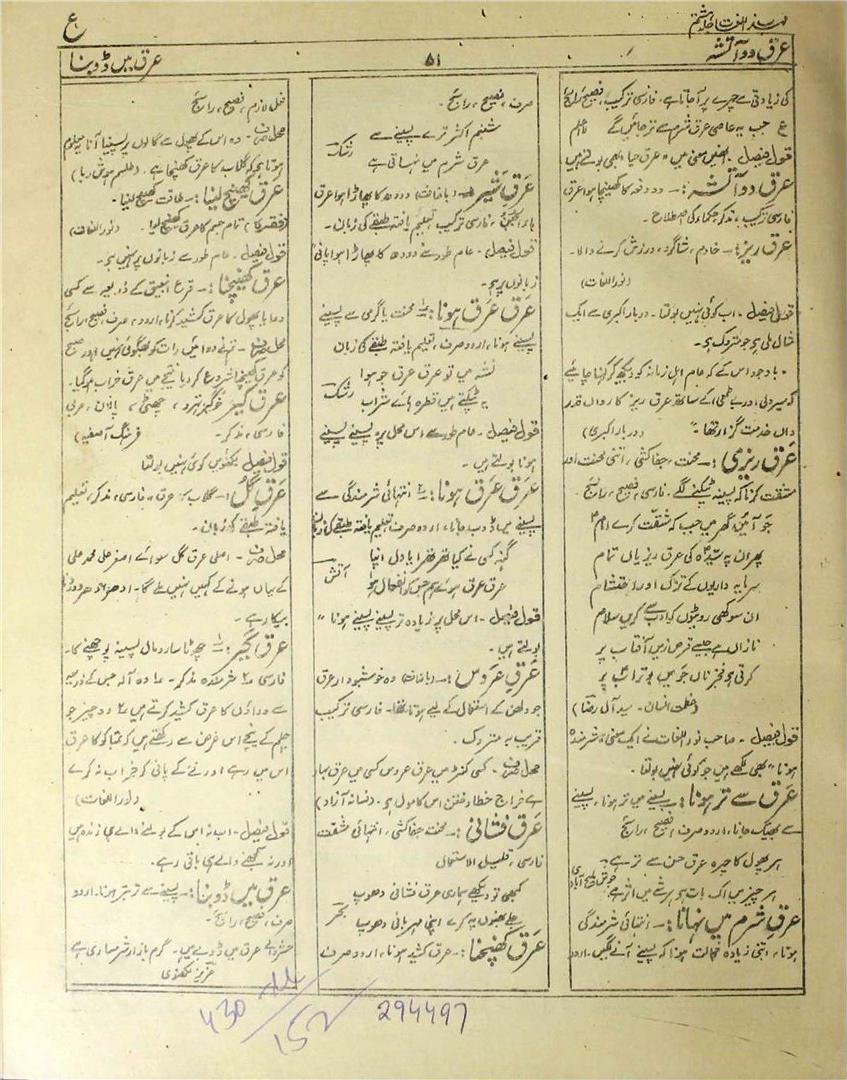 مہذب اللغات جلد ہشتم
ع
عرق دو آتشہ
۵۱
عرق میں ڈوبنا
کی زیادتی سے چہرے پر آجاتا ہے۔ فارسی ترکیب، فصیح، رائج
ع جب یہ عاصی عرق شرم سے تر جائیں گے
قول فیصل۔ انھیں معنی میں "عرق حیا" بھی بولتے ہیں
عرق دو آتشہ:۔ دو دفعہ کا کھینچا ہوا عرق
فارسی ترکیب، مذکر، حکماء کی اصطلاح۔
عرق ریز:۔ خادم، شاگرد، ورزش کرنے والا۔
(نور اللغات)
قول فیصل۔ اب کوئی نہیں بولتا۔ دربار اکبری سے ایک
مثال ملی ہے جو متروک ہے۔
باوجود اس کے کہ عام اہل زمانہ کو دیکھ کر کہنا چاہئیے
کہ بیردلی اور بے طمعی کے ساتھ عرق ریز کارداں قدر
داں خدمت گزار تھا۔" (دربار اکبری)
عرق ریزی:۔ محنت، جفاکشی، اتنی محنت اور
مشقت کرنا کہ پسینہ ٹپکنے لگے۔ فارسی، فصیح، رائج۔
جو آئیں گھر میں جب کہ مشقت کرے امام
پھر ان پہ سیدہ کی عرق ریزیاں تمام
سرمایہ داریوں کے تزک اور احتشام
ان سوکھی روٹیوں کو ادب سے کریں سلام
نازاں ہے جیسے قرص زریں آفتاب پر
کرتی ہو فخر ناں جویں بوتراب پر
(عظمت انسان۔ سید آل رضا)
قول فیصل۔ صاحب نور اللغات نے ایک معنی "شرمندہ
ہونا" بھی لکھے ہیں جو کوئی نہیں بولتا۔
عرق سے تر ہونا:۔ پسینے میں تر ہونا، پسینے
سے بھیگ جانا، اردو صرف، فصیح، رائج
ہر پھول کا چہرہ عرق حسن سے تر ہے
ہر چیز میں اک بات ہے ہر شے میں اثر ہے
عرق شرم میں نہانا:۔ انتہائی شرمندگی
ہونا، اتنی زیادہ خجالت ہونا کہ پسینے آنے لگیں۔ اردو
صرف، فصیح، رائج۔
شبنم اکثر ترے پسینے سے
عرق شرم میں نہاتی ہے
رشک
عرق شیر۔ (باضافت) دودھ کا پھاڑا ہوا عرق
فارسی ترکیب، تعلیم یافتہ طبقے کی زبان۔
قول فیصل۔ عام طور سے دودھ کا پھاڑا ہوا پانی
زبانوں پر ہے۔
عرق عرق ہونا: ۱؎ محنت یا گرمی سے پسینے
پسینے ہونا، اردو صرف، تعلیم یافتہ طبقے کی زبان
نشہ میں تو عرق عرق جو ہوا
یہ ٹپکتے ہیں قطرہ ہائے شراب
رشک
قول فیصل۔ عام طور سے اس محل پر پسینے پسینے
ہونا بولتے ہیں۔
عرق عرق ہونا: ۲؎ انتہائی شرمندگی سے
پسینے میں ڈوب جانا، اردو صرف تعلیم یافتہ طبقے کی زبان
گنہ کسی نے کیا تھر تھرا یا دل اپنا
عرق عرق ہوئے ہم جس کو انفعال ہوا
آتش
قول فیصل۔ اس محل پر زیادہ تر پسینے پسینے ہونا"
بولتے ہیں۔
عرق عروس:۔ (باضافت) وہ خوشبودار عرق
جو دلھن کے استعمال کے لیے ہوتا تھا۔ فارسی ترکیب
قریب بہ متروک۔
محل صرف۔ کسی کنٹر میں عرق عروس کسی میں عرق بہار
ہے خراج خطا و ختن اس کا مول ہے۔ (فسانہ آزاد)
عرق فشانی:۔ محنت جفاکشی، انتہائی مشقت
فارسی، قلیل الاستعمال
کبھی تو دیکھے ہماری عرق فشانی دھوپ
جلے بھنوں پہ کرے اپنی مہربانی دھوپ
بحر
عرق کھنچنا:۔ عرق کشید ہونا، اردو صرف
فعل لازم، فصیح، رائج
محل صرف۔ وہ اس کے پھول سے گالوں پر پسینا آنا معلوم
ہوتا ہے کہ گلاب کا عرق کھنچا ہے۔ (طلسم ہوش ربا)
عرق کھینچ لینا:۔ طاقت کھینچ لینا۔
(فقرہ) تمام جسم کا عرق کھینچ لیا۔ (نور اللغات)
قول فیصل۔ عام طور سے زبانوں پر نہیں ہے۔
عرق کھینچنا:۔ قرع انبیق کے ذریعہ سے کسی
دوا یا پھول کا عرق کشید کرنا، اردو، صرف، فصیح، رائج
محل صرف۔ تم نے دوائیں رات کو بھگوئی نہیں اور صبح
کو عرق کھینچنا شروع کر دیا نتیجے میں عرق خراب ہو گیا۔
عرق گیر: خوگیر، نمدہ، چھتی، پالان، عربی
فارسی، مذکر۔ (فرہنگ آصفیہ)
قول فیصل۔ لکھنؤ میں کوئی نہیں بولتا
عرق گل:۔ گلاب کا عرق، فارسی، مذکر، تعلیم
یافتہ طبقے کی زبان۔
محل صرف۔ اصلی عرق گل سوائے اصغر علی محمد علی
کے یہاں ہونے کے کہیں نہیں ملے گا۔ ادھر ادھر دوڑنا
بیکار ہے۔
عرق گیر: ۱؎ چھوٹا سا رومال پسینہ پونچھنے کا۔
فارسی ۲؎ شرمندہ مذکر۔ ۳؎ وہ آلہ جس کے ذریعہ
سے دواؤں کا عرق کشید کرتے ہیں ۴؎ وہ چیز جو
چلم کے نیچے اس غرض سے رکھتے ہیں کہ تمباکو کا عرق
اس میں رہے اور نے کے پانی کو خراب نہ کرے
(نور اللغات)
قول فیصل۔ اب نہ اس کے بولنے والے ہی زندہ ہیں
اور نہ سمجھنے والے ہی باقی رہے۔
عرق میں ڈوبنا:۔ پسینے سے تر بتر ہونا۔ اردو
صرف، فصیح، رائج۔
عرق میں ڈوبے ہیں۔ گرم بازار شرمساری ہے
عزیز لکھنوی
430
152
294497